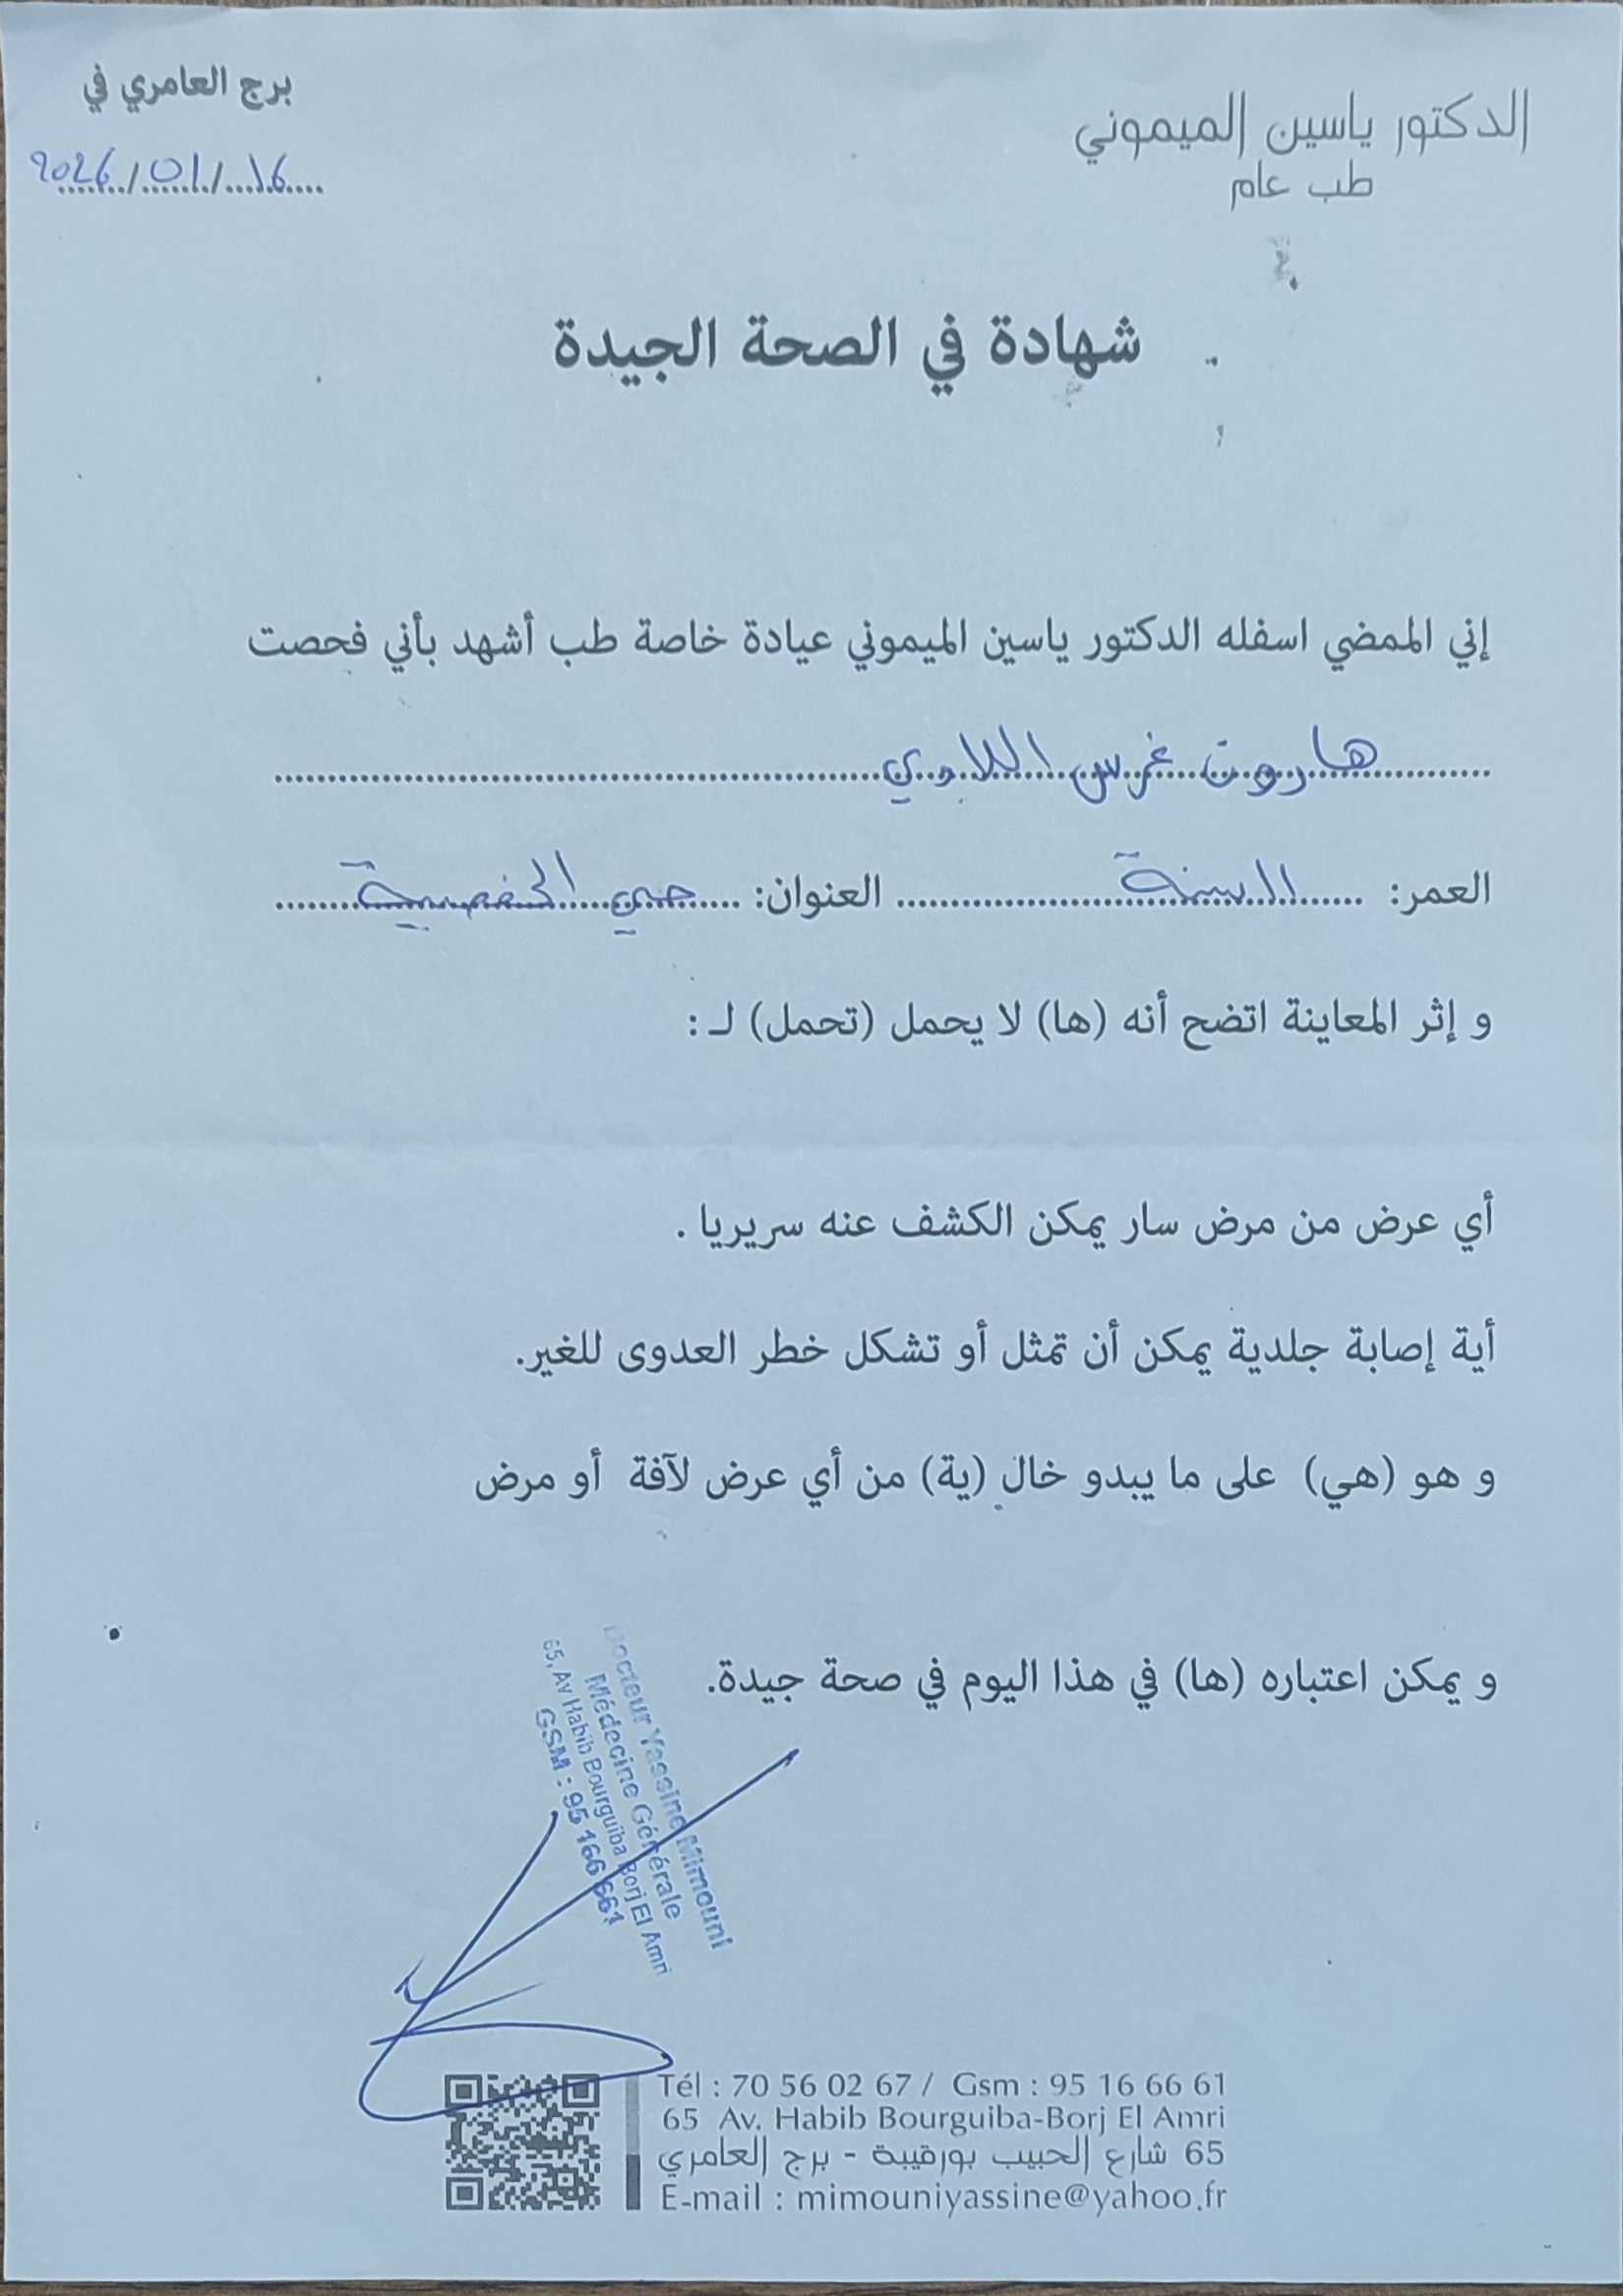 الدكتور ياسين الميموني
طب عام
برج العامري في
16/01/2026
شهادة في الصحة الجيدة
إني الممضي اسفله الدكتور ياسين الميموني عيادة خاصة طب أشهد بأني فحصت
هارون غرس اللاوي
العمر: 11 سنة العنوان: حي الحفصية
و إثر المعاينة اتضح أنه (ها) لا يحمل (تحمل) لـ :
أي عرض من مرض سار يمكن الكشف عنه سريريا .
أية إصابة جلدية يمكن أن تمثل أو تشكل خطر العدوى للغير.
و هو (هي) على ما يبدو خال (ية) من أي عرض لآفة أو مرض
و يمكن اعتباره (ها) في هذا اليوم في صحة جيدة.
Docteur Yassine Mimouni
Médecine Générale
65, Av Habib Bourguiba Borj El Amri
GSM : 95 166 661
Tél : 70 56 02 67 / Gsm : 95 16 66 61
65 Av. Habib Bourguiba-Borj El Amri
65 شارع الحبيب بورقيبة - برج العامري
E-mail : mimouniyassine@yahoo.fr